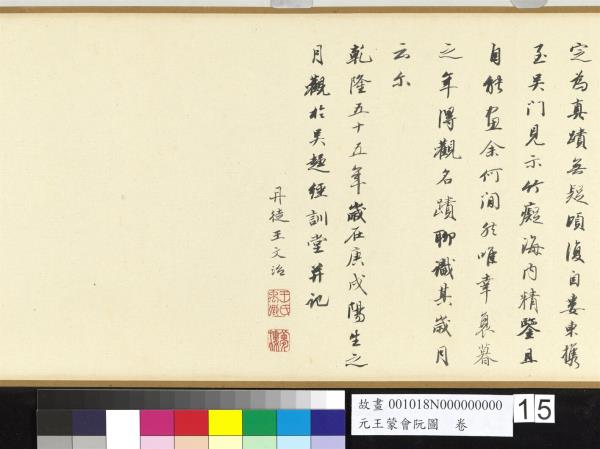 定為真蹟無疑頃復自婁東攜
至吳门見示竹癡海内精鑒且
自能畫余何間然唯幸衰暮
之年得觀名蹟聊識其歲月
云尔
乾隆五十五年歲在庚戌陽生之
月觀於吳趨經訓堂并记
丹徒王文治
故畫 001018N000000000
元王蒙會阮圖 卷
15